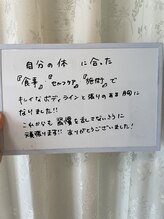 自分の体 に合った
『食事』『セルフケア』『施術』で
キレイなボディラインと張りのある胸に
なりました!!
これからも 習慣を忘してないように
頑張ります!! ありがとうございました!